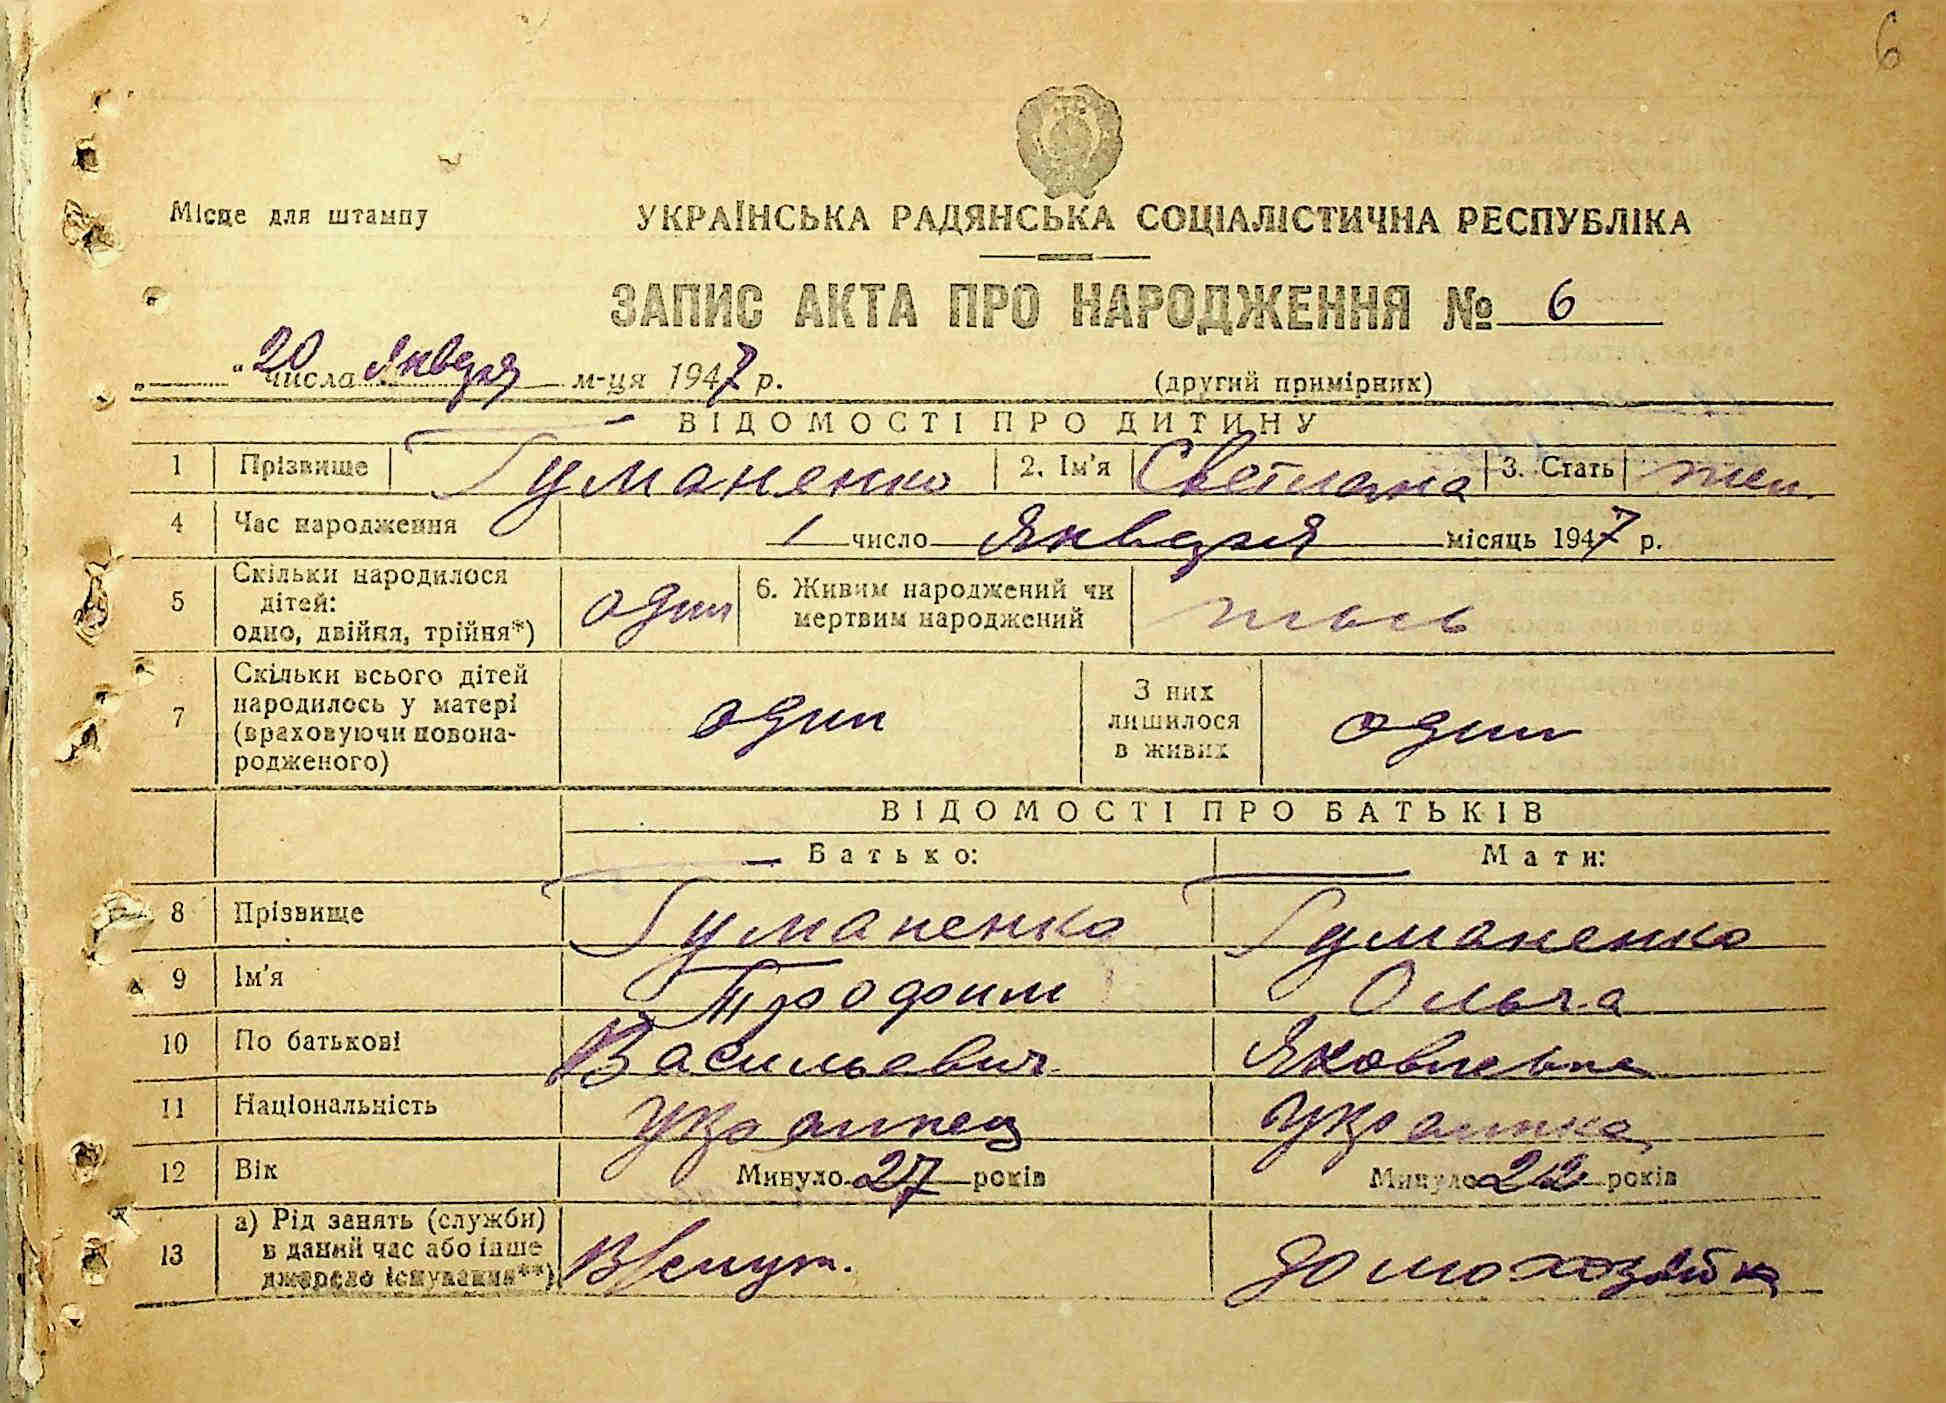 6
Місце для штампу
УКРАЇНСЬКА РАДЯНСЬКА СОЦІАЛІСТИЧНА РЕСПУБЛІКА
ЗАПИС АКТА ПРО НАРОДЖЕННЯ № 6
„ 20 “ числа января м-ця 1947 р. (другий примірник)
ВІДОМОСТІ ПРО ДИТИНУ
1 Прізвище Туманенко 2. Ім'я Светлана 3. Стать жен.
4 Час народження 1 число Января місяць 1947 р.
5 Скільки народилося дітей: одно, двійня, трійня*) один 6. Живим народжений чи мертвим народжений
7 Скільки всього дітей народилось у матері (враховуючи новонародженого) один З них лишилося в живих один
ВІДОМОСТІ ПРО БАТЬКІВ
Батько: Мати:
8 Прізвище Туманенко Туманенко
9 Ім'я Трофим Ольга
10 По батькові Васильевич Яковлевна
11 Національність Украинец Украинка
12 Вік Минуло 27 років Минуло 22 років
13 а) Рід занять (служби) в даний час або інше джерело існування**) домохозяйка